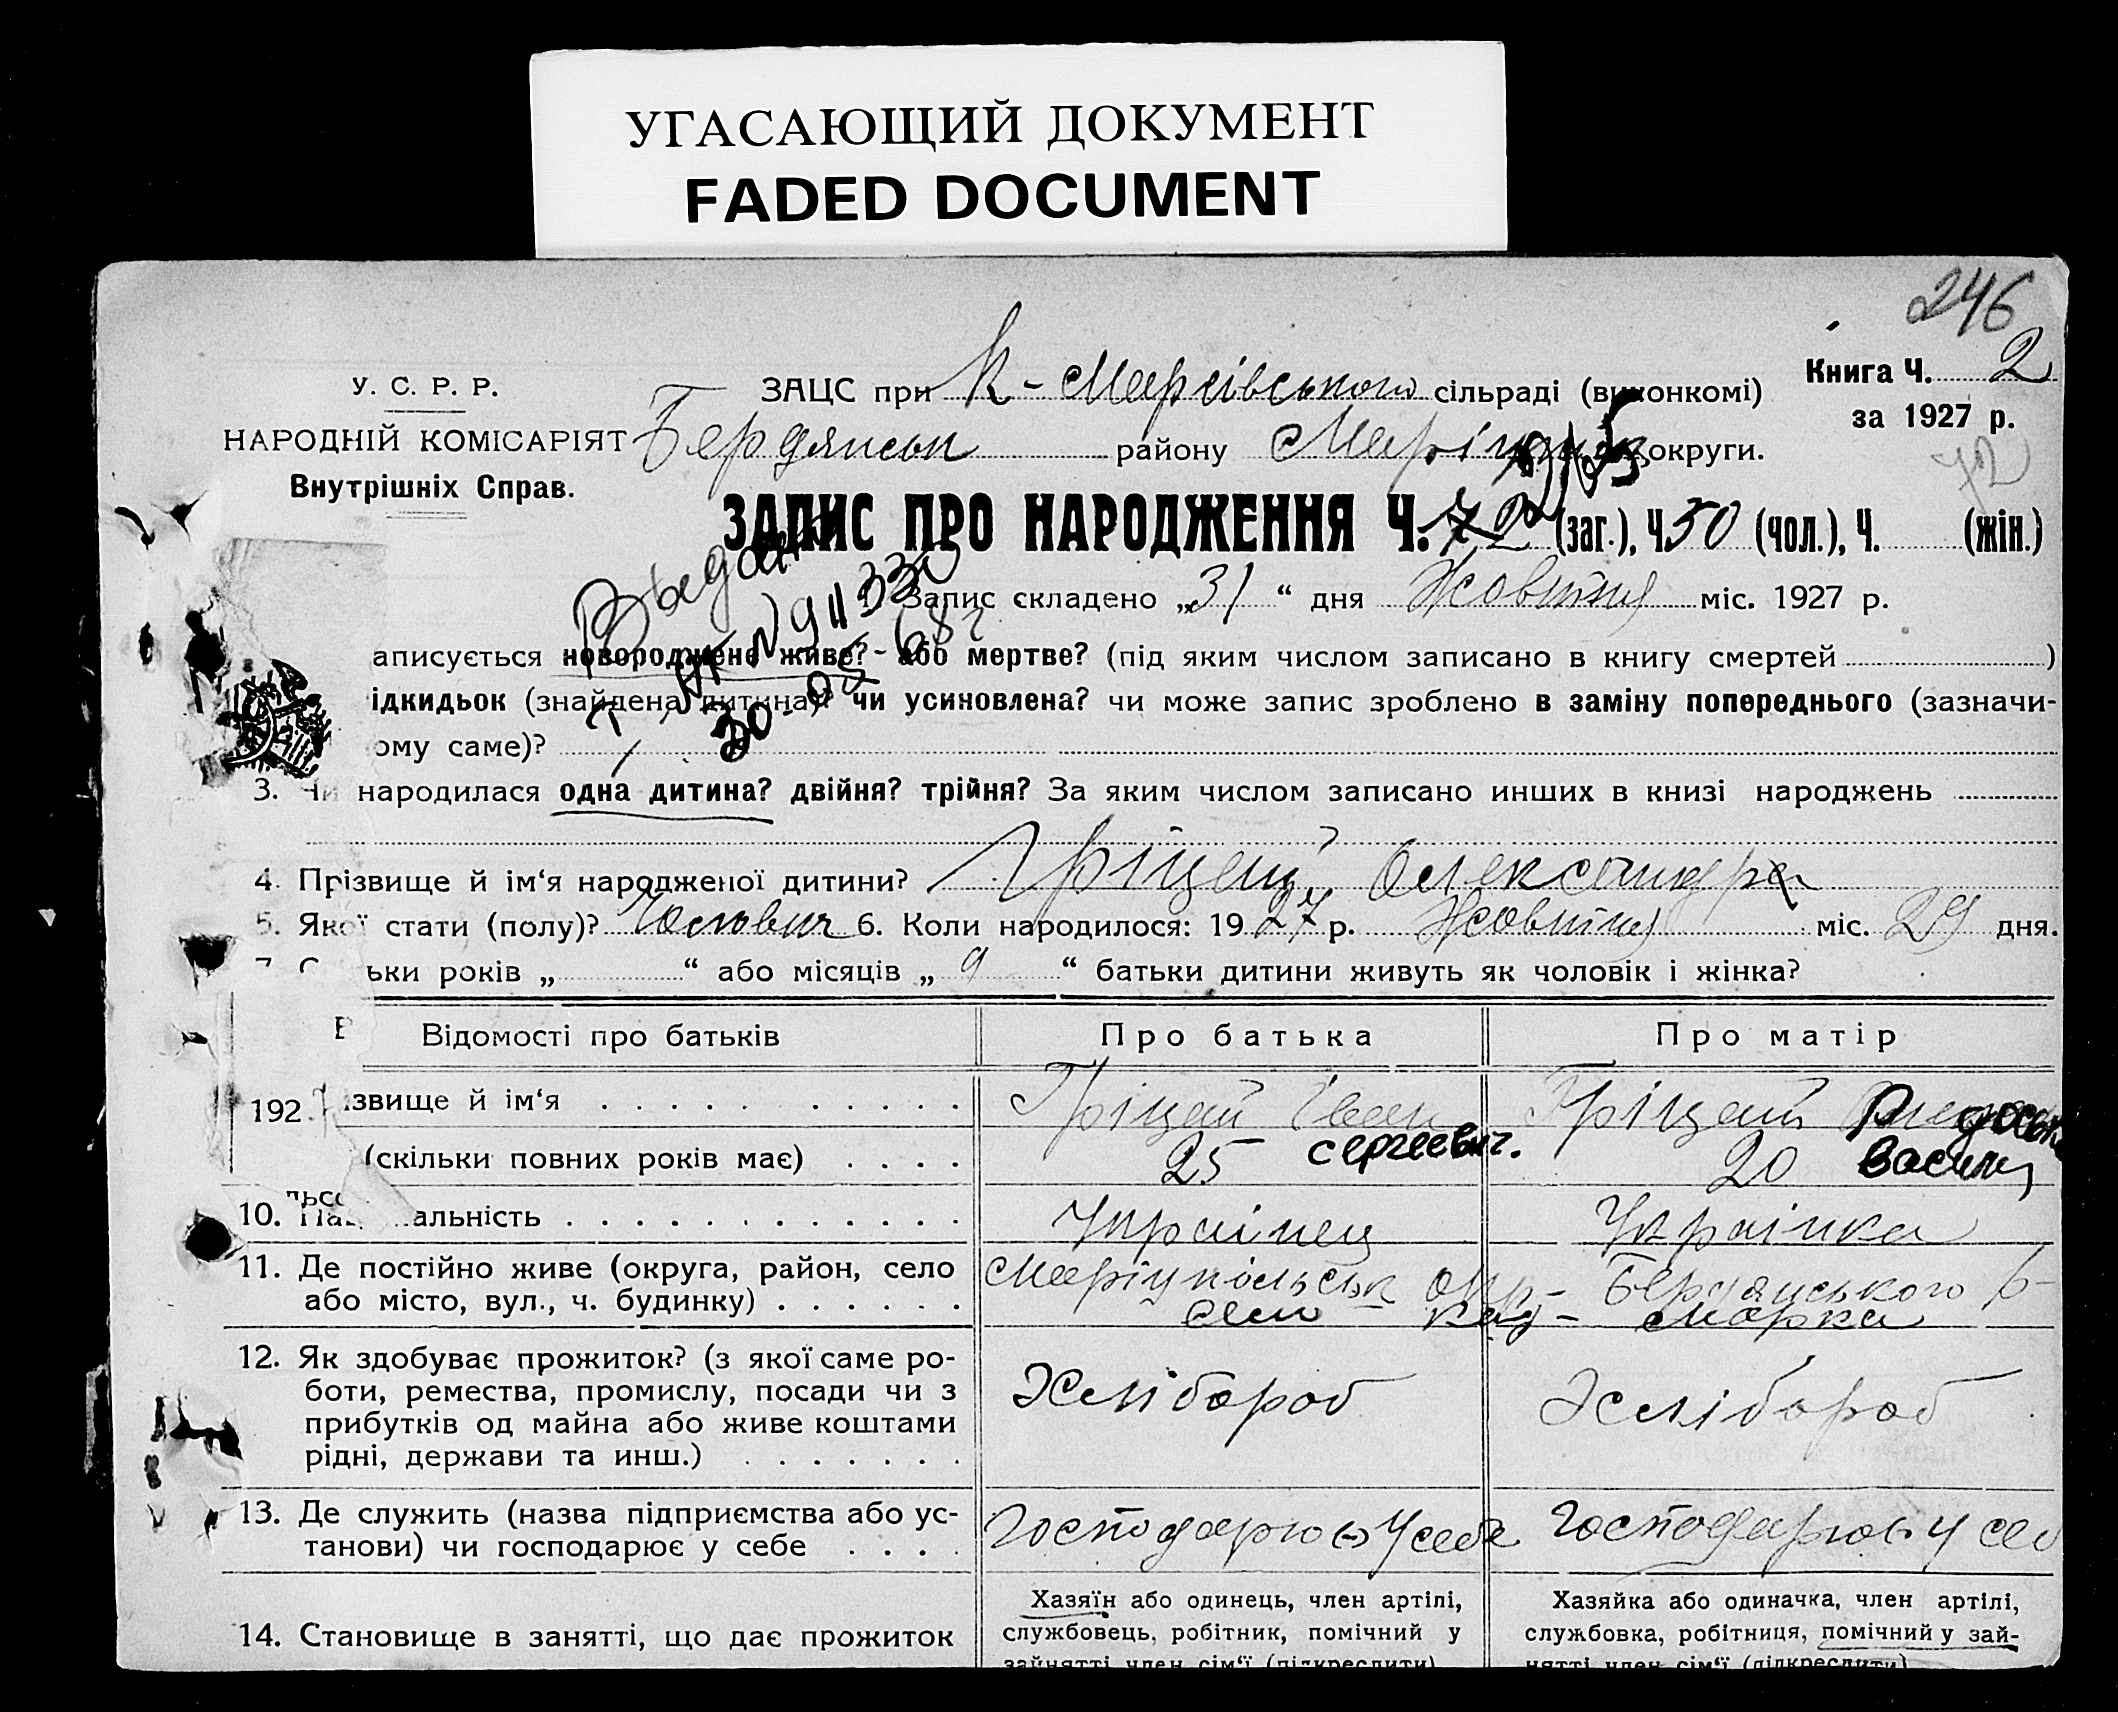 УГАСАЮЩИЙ ДОКУМЕНТ
FADED DOCUMENT
246
Книга Ч. 2
за 1927 р.
72
У. С. Р. Р.
НАРОДНІЙ КОМІСАРІЯТ
Внутрішніх Справ.
ЗАЦС при К-Марківського сільраді (виконкомі)
Бердянськ району округи.
ЗАПИС ПРО НАРОДЖЕННЯ Ч. 72 (заг.), Ч. 50 (чол.), Ч. (жін.)
Запис складено „31“ дня Жовтня міс. 1927 р.
аписується новороджене живе? або мертве? (під яким числом записано в книгу смертей )
ідкидьок (знайдена дитина)? чи усиновлена? чи може запис зроблено в заміну попереднього (зазначи-
ому саме)?
3. Чи народилася одна дитина? двійня? трійня? За яким числом записано инших в книзі народжень
4. Прізвище й ім‘я народженої дитини? Гріцай Олександр
5. Якої стати (полу)? Чоловіч 6. Коли народилося: 1927 р. Жовтня міс. 29 дня.
ьки років „ “ або місяців „ 9 “ батьки дитини живуть як чоловік і жінка?
Відомості про батьків
Про батька
Про матір
192
ізвище й ім‘я
Гріцай Іван
Сергеевич.
Гріцай
(скільки повних років має)
25
20
10. альність
Українец
Українка
11. Де постійно живе (округа, район, село
або місто, вул., ч. будинку)
Маріупільськ Окр- Бердянського
село Кад- Марка
12. Як здобуває прожиток? (з якої саме ро-
боти, ремества, промислу, посади чи з
прибутків од майна або живе коштами
рідні, держави та инш.)
Хлібороб
Хлібороб
13. Де служить (назва підприємства або ус-
танови) чи господарює у себе
Господарює у себе
Господарює у себ
14. Становище в занятті, що дає прожиток
Хазяїн або одинець, член артілі,
службовець, робітник, помічний у
зайнятті член сім‘ї (підкреслити)
Хазяйка або одиначка, член артілі,
службовка, робітниця, помічний у зай-
нятті член сім‘ї (підкреслити)